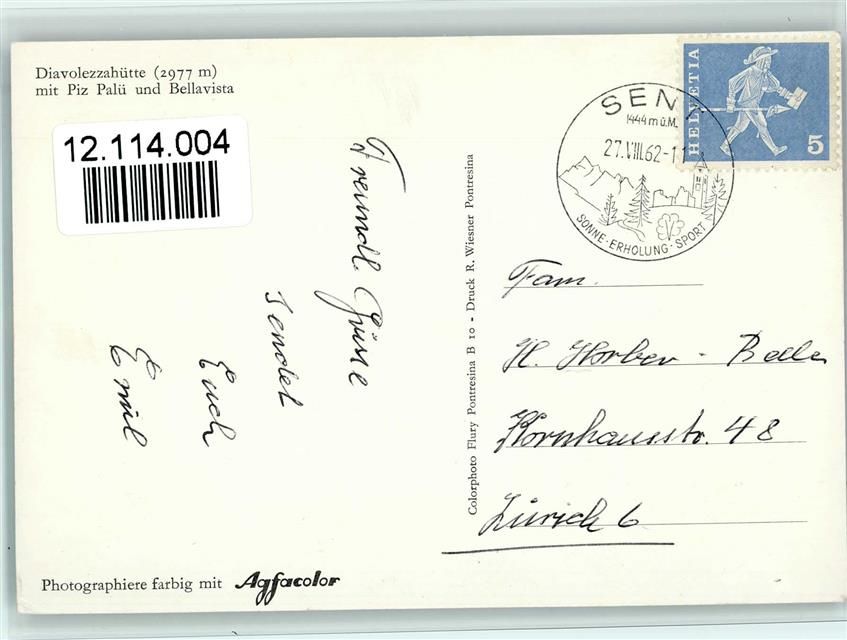 Diavolezzahütte (2977 m)
mit Piz Palü und Bellavista
12.114.004
Freundl. Grüsse
sendet
Euch
Emil
Colorphoto Flury Pontresina B 10 - Druck R. Wiesner Pontresina
SENT
1444 m ü.M.
27.VIII.62-11
SONNE·ERHOLUNG·SPORT
HELVETIA
5
Fam.
H. Horber - Belle
Kornhausstr. 48
Zürich 6
Photographiere farbig mit Agfacolor